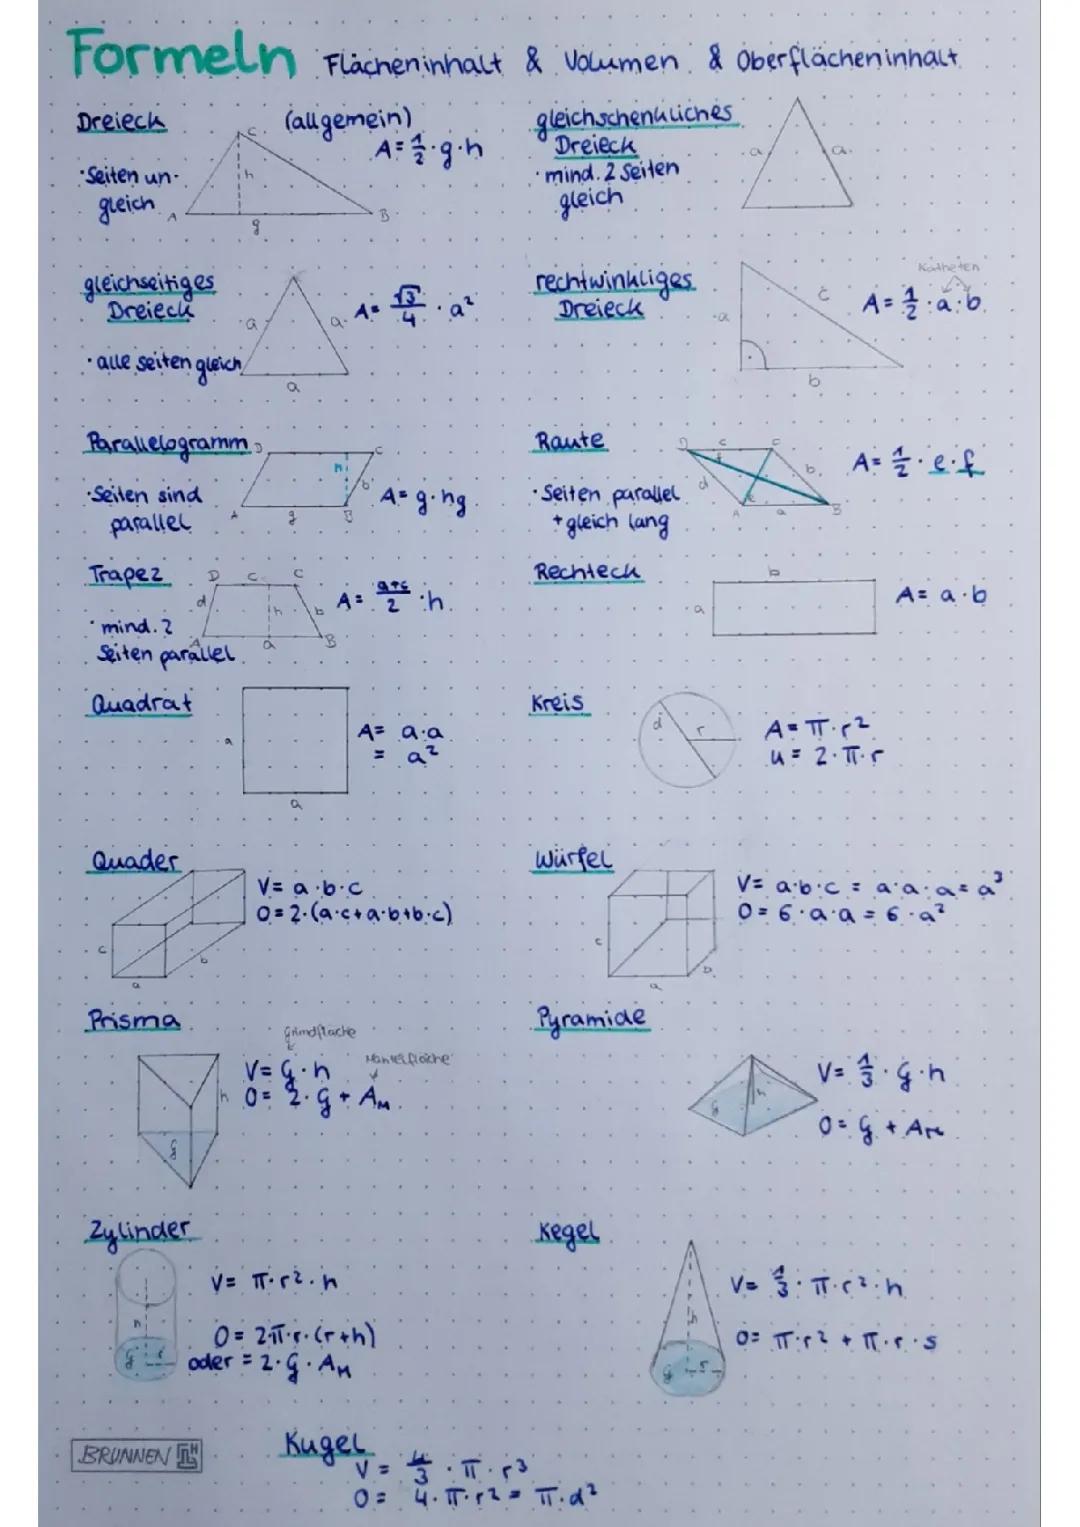 Formeln Flächeninhalt & Volumen & Oberflächeninhalt
Dreieck (allgemein)
A = 1/2 · g · h
· Seiten un-
gleich
C
h
A
g
B
gleichschenkliches
Dreieck
· mind. 2 Seiten
gleich
a
a
gleichseitiges
Dreieck
· alle seiten gleich
a
a
a
A = √3/4 · a²
rechtwinkliges
Dreieck
a
c
b
Katheten
A = 1/2 · a · b
Parallelogramm
· Seiten sind
parallel
D
C
h
b
A
g
B
A = g · hg
Raute
· Seiten parallel
+ gleich lang
D
c
C
f
b
d
e
A
a
B
A = 1/2 · e · f
Trapez
· mind. 2
Seiten parallel
D
c
C
d
h
b
A
a
B
A = a+c/2 · h
Rechteck
b
a
A = a · b
Quadrat
a
a
A = a · a
= a²
Kreis
d
r
A = π · r²
u = 2 · π · r
Quader
c
a
b
V = a · b · c
O = 2 · (a · c + a · b + b · c)
Würfel
c
a
b
V = a · b · c = a · a · a = a³
O = 6 · a · a = 6 · a²
Prisma
Grundfläche
Mantelfläche
V = G · h
O = 2 · G + AM
h
G
Pyramide
G
h
V = 1/3 · G · h
O = G + AM
Zylinder
h
G
r
V = π · r² · h
O = 2 · π · r · (r + h)
oder = 2 · G · AM
Kegel
h
G
r
V = 1/3 · π · r² · h
O = π · r² + π · r · s
BRUNNEN
Kugel
V = 4/3 · π · r³
O = 4 · π · r² = π · d²